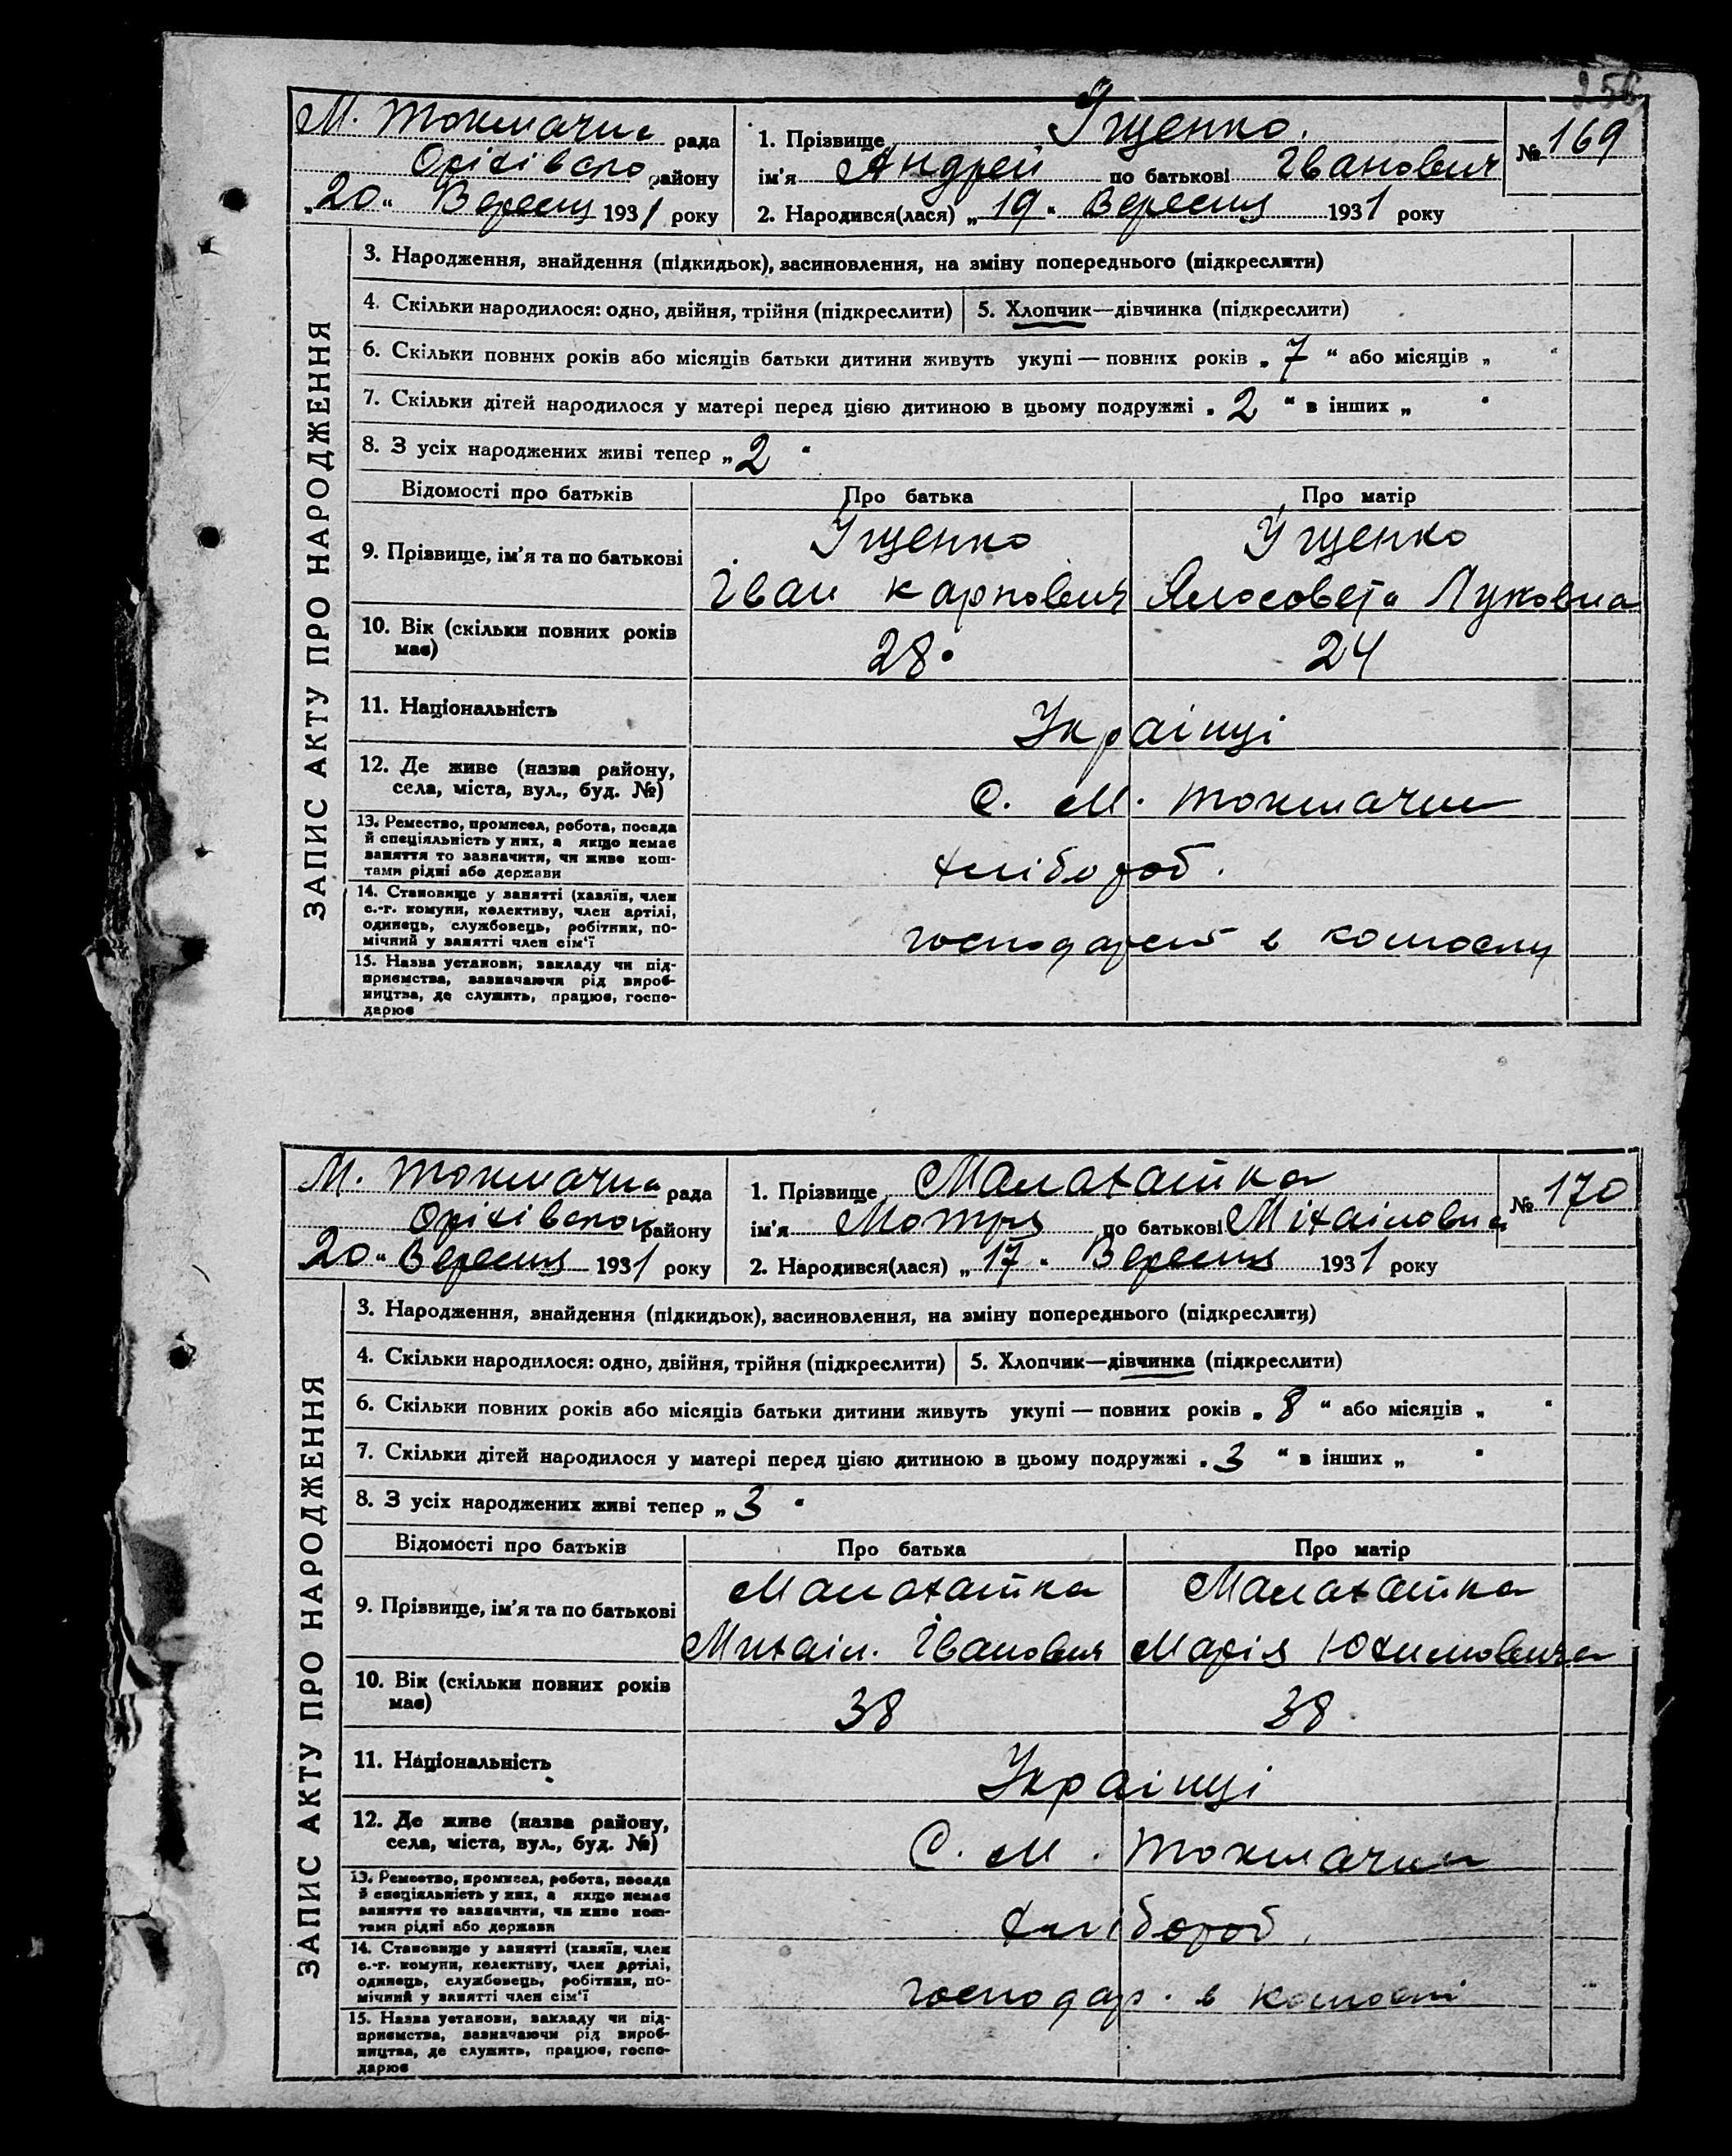 256
М. Токмачка рада
Оріхівсько району
„20“ Вересня 1931 року
1. Прізвище Іщенко.
ім'я Андрей по батькові Іванович
2. Народився(лася) „19“ Вересня 1931 року
№ 169
ЗАПИС АКТУ ПРО НАРОДЖЕННЯ
3. Народження, знайдення (підкидьок), засиновлення, на зміну попереднього (підкреслити)
4. Скільки народилося: одно, двійня, трійня (підкреслити)
5. Хлопчик—дівчинка (підкреслити)
6. Скільки повних років або місяців батьки дитини живуть укупі — повних років „7“ або місяців „ “
7. Скільки дітей народилося у матері перед цією дитиною в цьому подружжі „2“ в інших „ “
8. З усіх народжених живі тепер „2“
Відомості про батьків
Про батька
Про матір
9. Прізвище, ім'я та по батькові
Іщенко
Іван Карпович
Іщенко
Ялосовета Луковна
10. Вік (скільки повних років
має)
28.
24
11. Національність
Українці
12. Де живе (назва району,
села, міста, вул., буд. №)
С. М. Токмачка
13. Ремество, промисел, робота, посада
й спеціяльність у них, а якщо немає
заняття то зазначити, чи живе кош-
тами рідні або держави
хлібороб.
14. Становище у занятті (хазяїн, член
с.-г. комуни, колективу, член артілі,
одинець, службовець, робітник, по-
мічний у занятті член сім'ї
в колгоспу
15. Назва установи, закладу чи під-
приємства, зазначаючи рід вироб-
ництва, де служить, працює, госпо-
дарює
М. Токмачка рада
Оріхівської району
20“ Вересня 1931 року
1. Прізвище Малахатка
ім'я Мотря по батькові Міхаіловна
2. Народився(лася) „17“ Вересня 1931 року
№ 170
ЗАПИС АКТУ ПРО НАРОДЖЕННЯ
3. Народження, знайдення (підкидьок), засиновлення, на зміну попереднього (підкреслити)
4. Скільки народилося: одно, двійня, трійня (підкреслити)
5. Хлопчик—дівчинка (підкреслити)
6. Скільки повних років або місяців батьки дитини живуть укупі — повних років „8“ або місяців „ “
7. Скільки дітей народилося у матері перед цією дитиною в цьому подружжі „3“ в інших „ “
8. З усіх народжених живі тепер „3“
Відомості про батьків
Про батька
Про матір
9. Прізвище, ім'я та по батькові
Малахатка
Михаіл. Іванович
Малахатка
Марія Юхимовича
10. Вік (скільки повних років
має)
38
38.
11. Національність
Українці
12. Де живе (назва району,
села, міста, вул., буд. №)
С. М. Токмачка
13. Ремество, промисел, робота, посада
й спеціяльність у них, а якщо немає
заняття то зазначити, чи живе кош-
тами рідні або держави
хлібороб.
14. Становище у занятті (хазяїн, член
с.-г. комуни, колективу, член артілі,
одинець, службовець, робітник, по-
мічний у занятті член сім'ї
господар. в колгоспі
15. Назва установи, закладу чи під-
приємства, зазначаючи рід вироб-
ництва, де служить, працює, госпо-
дарює